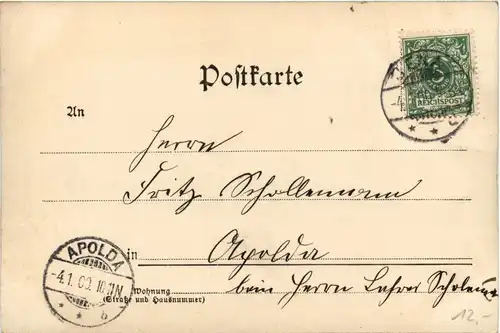 Postkarte
REICHSPOST
An
Herrn
Fritz Schollemann
in
Apolda
APOLDA
-4.1.00.10-11N
b
Wohnung
(Straße und Hausnummer)
beim Herrn Lehrer
12.-